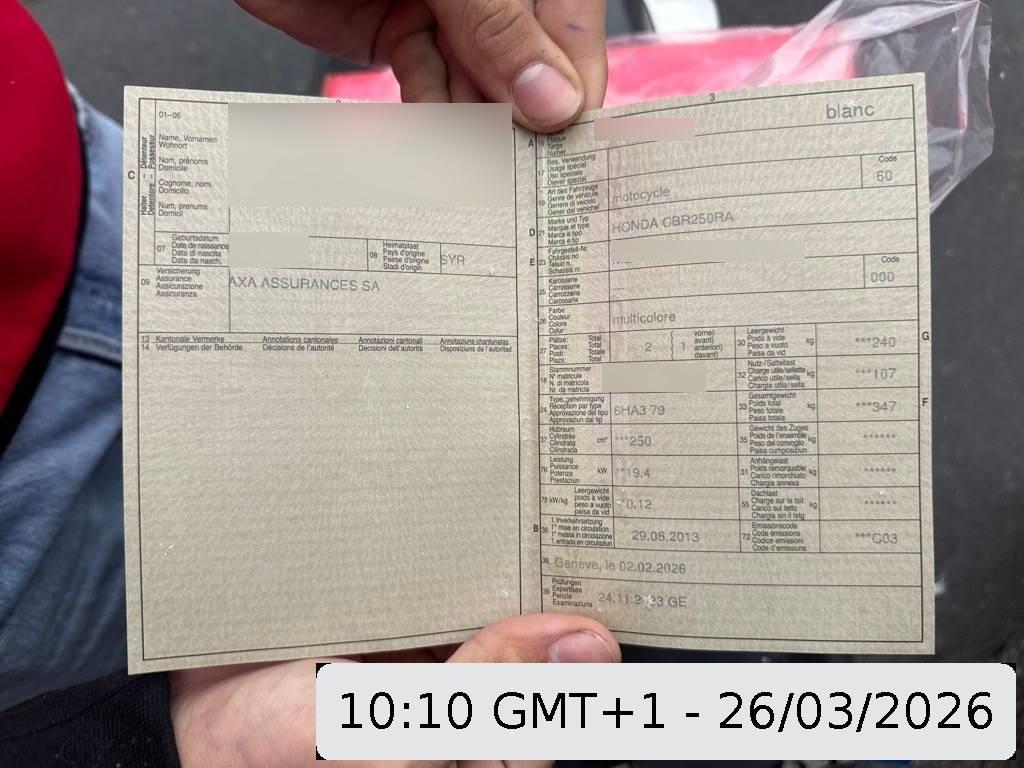 2
01–06
C
Halter – Détenteur
Detentore – Possessur
Name, Vornamen
Wohnort
Nom, prénoms
Domicile
Cognome, nomi
Domicilio
Num, prenums
Domicil
07
Geburtsdatum
Date de naissance
Data di nascita
Data da nasch.
08
Heimatstaat
Pays d'origine
Paese d'origine
Stadi d'origin
SYR
09
Versicherung
Assurance
Assicurazione
Assicuranza
AXA ASSURANCES SA
13 Kantonale Vermerke Annotations cantonales Annotazioni cantonali Annotaziuns chantunalas
14 Verfügungen der Behörde Décisions de l'autorité Decisioni dell'autorità Disposiziuns da l'autoritad
3
A
Plaque
Targa
Numer
blanc
17
Bes. Verwendung
Usage spécial
Uso speciale
Diever spezial
Code
60
19
Art des Fahrzeugs
Genre de véhicule
Genere di veicolo
Gener dal vehichel
motocycle
D
21
Marke und Typ
Marque et type
Marca e tipo
Marca e tip
HONDA CBR250RA
E
23
Fahrgestell-Nr.
Châssis no
Telaio n.
Schassis nr.
25
Karosserie
Carrosserie
Carrozzeria
Carossaria
Code
000
26
Farbe
Couleur
Colore
Colur
multicolore
27
Plätze: Total
Places: Total
Posti: Totale
Plazs: Total
2
1
vorne)
avant)
anteriori)
davant)
30
Leergewicht
Poids à vide
Peso a vuoto
Paisa da vid
kg
***240
G
18
Stammnummer
N° matricule
N. di matricola
Nr. da matricla
32
Nutz-/Sattellast
Charge utile/sellette
Carico utile/sella
Chargia utila/sella
kg
***107
24
Typengenehmigung
Réception par type
Approvazione del tipo
Approvaziun dal tip
6HA3 79
33
Gesamtgewicht
Poids total
Peso totale
Paisa totala
kg
***347
F
37
Hubraum
Cylindrée
Cilindrata
Cilindrada
cm³
***250
35
Gewicht des Zuges
Poids de l'ensemble
Peso del convoglio
Paisa cumposiziun
kg
******
76
Leistung
Puissance
Potenza
Prestaziun
kW
**19.4
31
Anhängelast
Poids remorquable
Carico rimorchiato
Chargia annexa
kg
******
78 kW/kg
Leergewicht
poids à vide
peso a vuoto
paisa da vid
**0.12
55
Dachlast
Charge sur le toit
Carico sul tetto
Chargia sin il tetg
kg
******
B
36
1. Inverkehrsetzung
1re mise en circulation
1a messa in circolazione
1. entrada en circulaziun
29.08.2013
72
Emissionscode
Code émissions
Codice emissioni
Code d'emissiuns
***G03
38
Genève, le 02.02.2026
39
Prüfungen
Expertises
Perizie
Examinaziuns
24.11.2 23 GE
10:10 GMT+1 - 26/03/2026